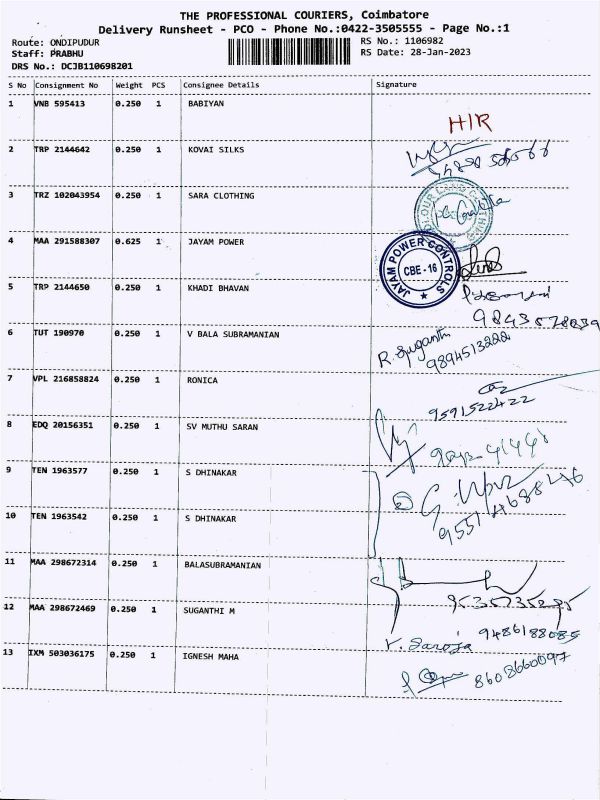 THE PROFESSIONAL COURIERS, Coimbatore
Delivery Runsheet - PCO - Phone No.:0422-3505555 - Page No.:1
Route: ONDIPUDUR
RS No.: 1106982
Staff: PRABHU
RS Date: 28-Jan-2023
DRS No.: DCJB110698201
S No Consignment No Weight PCS Consignee Details Signature
1 VNB 595413 0.250 1 BABIYAN
H/R
2 TRP 2144642 0.250 1 KOVAI SILKS
3 TRZ 102043954 0.250 1 SARA CLOTHING
4 MAA 291588307 0.625 1 JAYAM POWER
JAYAM POWER CONTROLS
CBE - 16
5 TRP 2144650 0.250 1 KHADI BHAVAN
6 TUT 190970 0.250 1 V BALA SUBRAMANIAN
R. Suganthi
9894513222
7 VPL 216858824 0.250 1 RONICA
9591522422
8 EDQ 20156351 0.250 1 SV MUTHU SARAN
9 TEN 1963577 0.250 1 S DHINAKAR
2
10 TEN 1963542 0.250 1 S DHINAKAR
11 MAA 298672314 0.250 1 BALASUBRAMANIAN
12 MAA 298672469 0.250 1 SUGANTHI M
9486188085
r. Saroja
13 IXM 503036175 0.250 1 IGNESH MAHA
8608660097